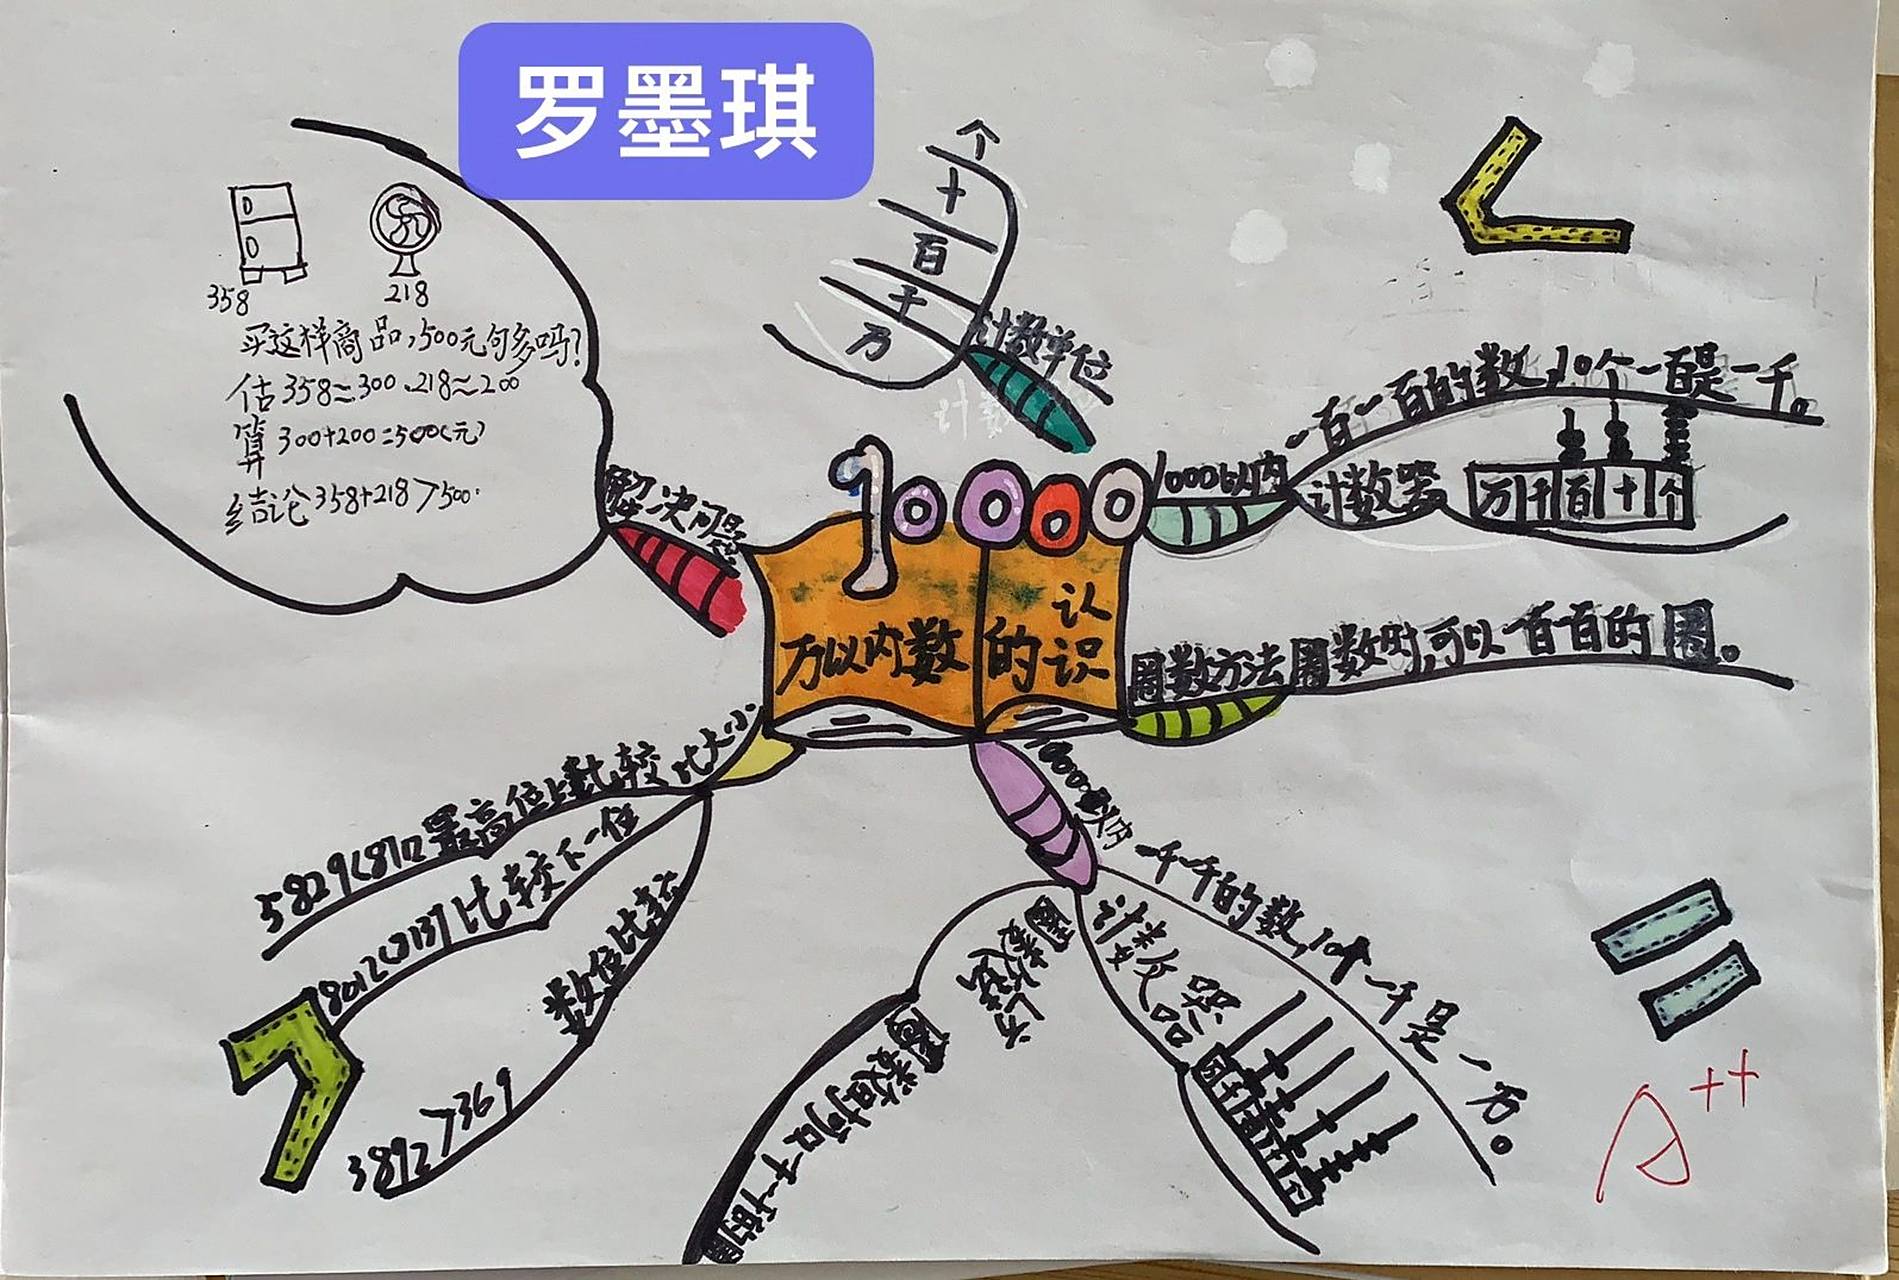 罗墨琪
358
218
买这样商品,500元句多吗?
估 358≈300、218≈200
算 300+200=500(元)
结论 358+218>500
解决问题
个
十
百
千
万
计数单位
10000
万以内数
的认识
1000以内
一百一百的数,10个一百是一千。
计数器
万千百十个
数方法
数时,可以一百一百的
比大小
最高位上数比较
5829<8172
比较下一位
8012<8137
数位比较
3892>369
10000以内
一千一千的数,10个一千是一万。
计数器
A++